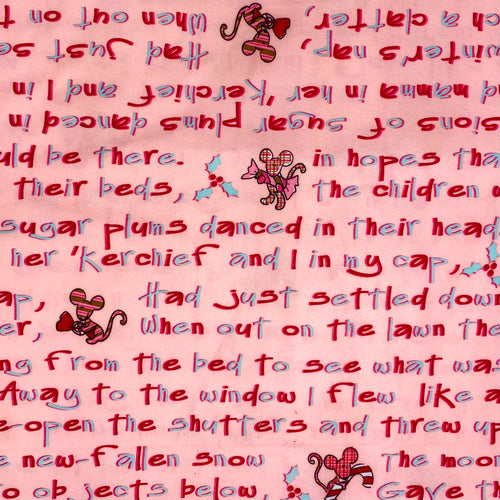 ch a clatter, When out on t
winter's nap, Had just se
nd mamma in her 'kerchief and I in
isions of sugar plums danced in
uld be there. in hopes tha
their beds, the children
sugar plums danced in their head
her 'kerchief and I in my cap,
ap, Had just settled dow
er, When out on the lawn the
ng from the bed to see what was
Away to the window I flew like a
e-open the shutters and threw up
e new-fallen snow The moon
to objects below, Gave t